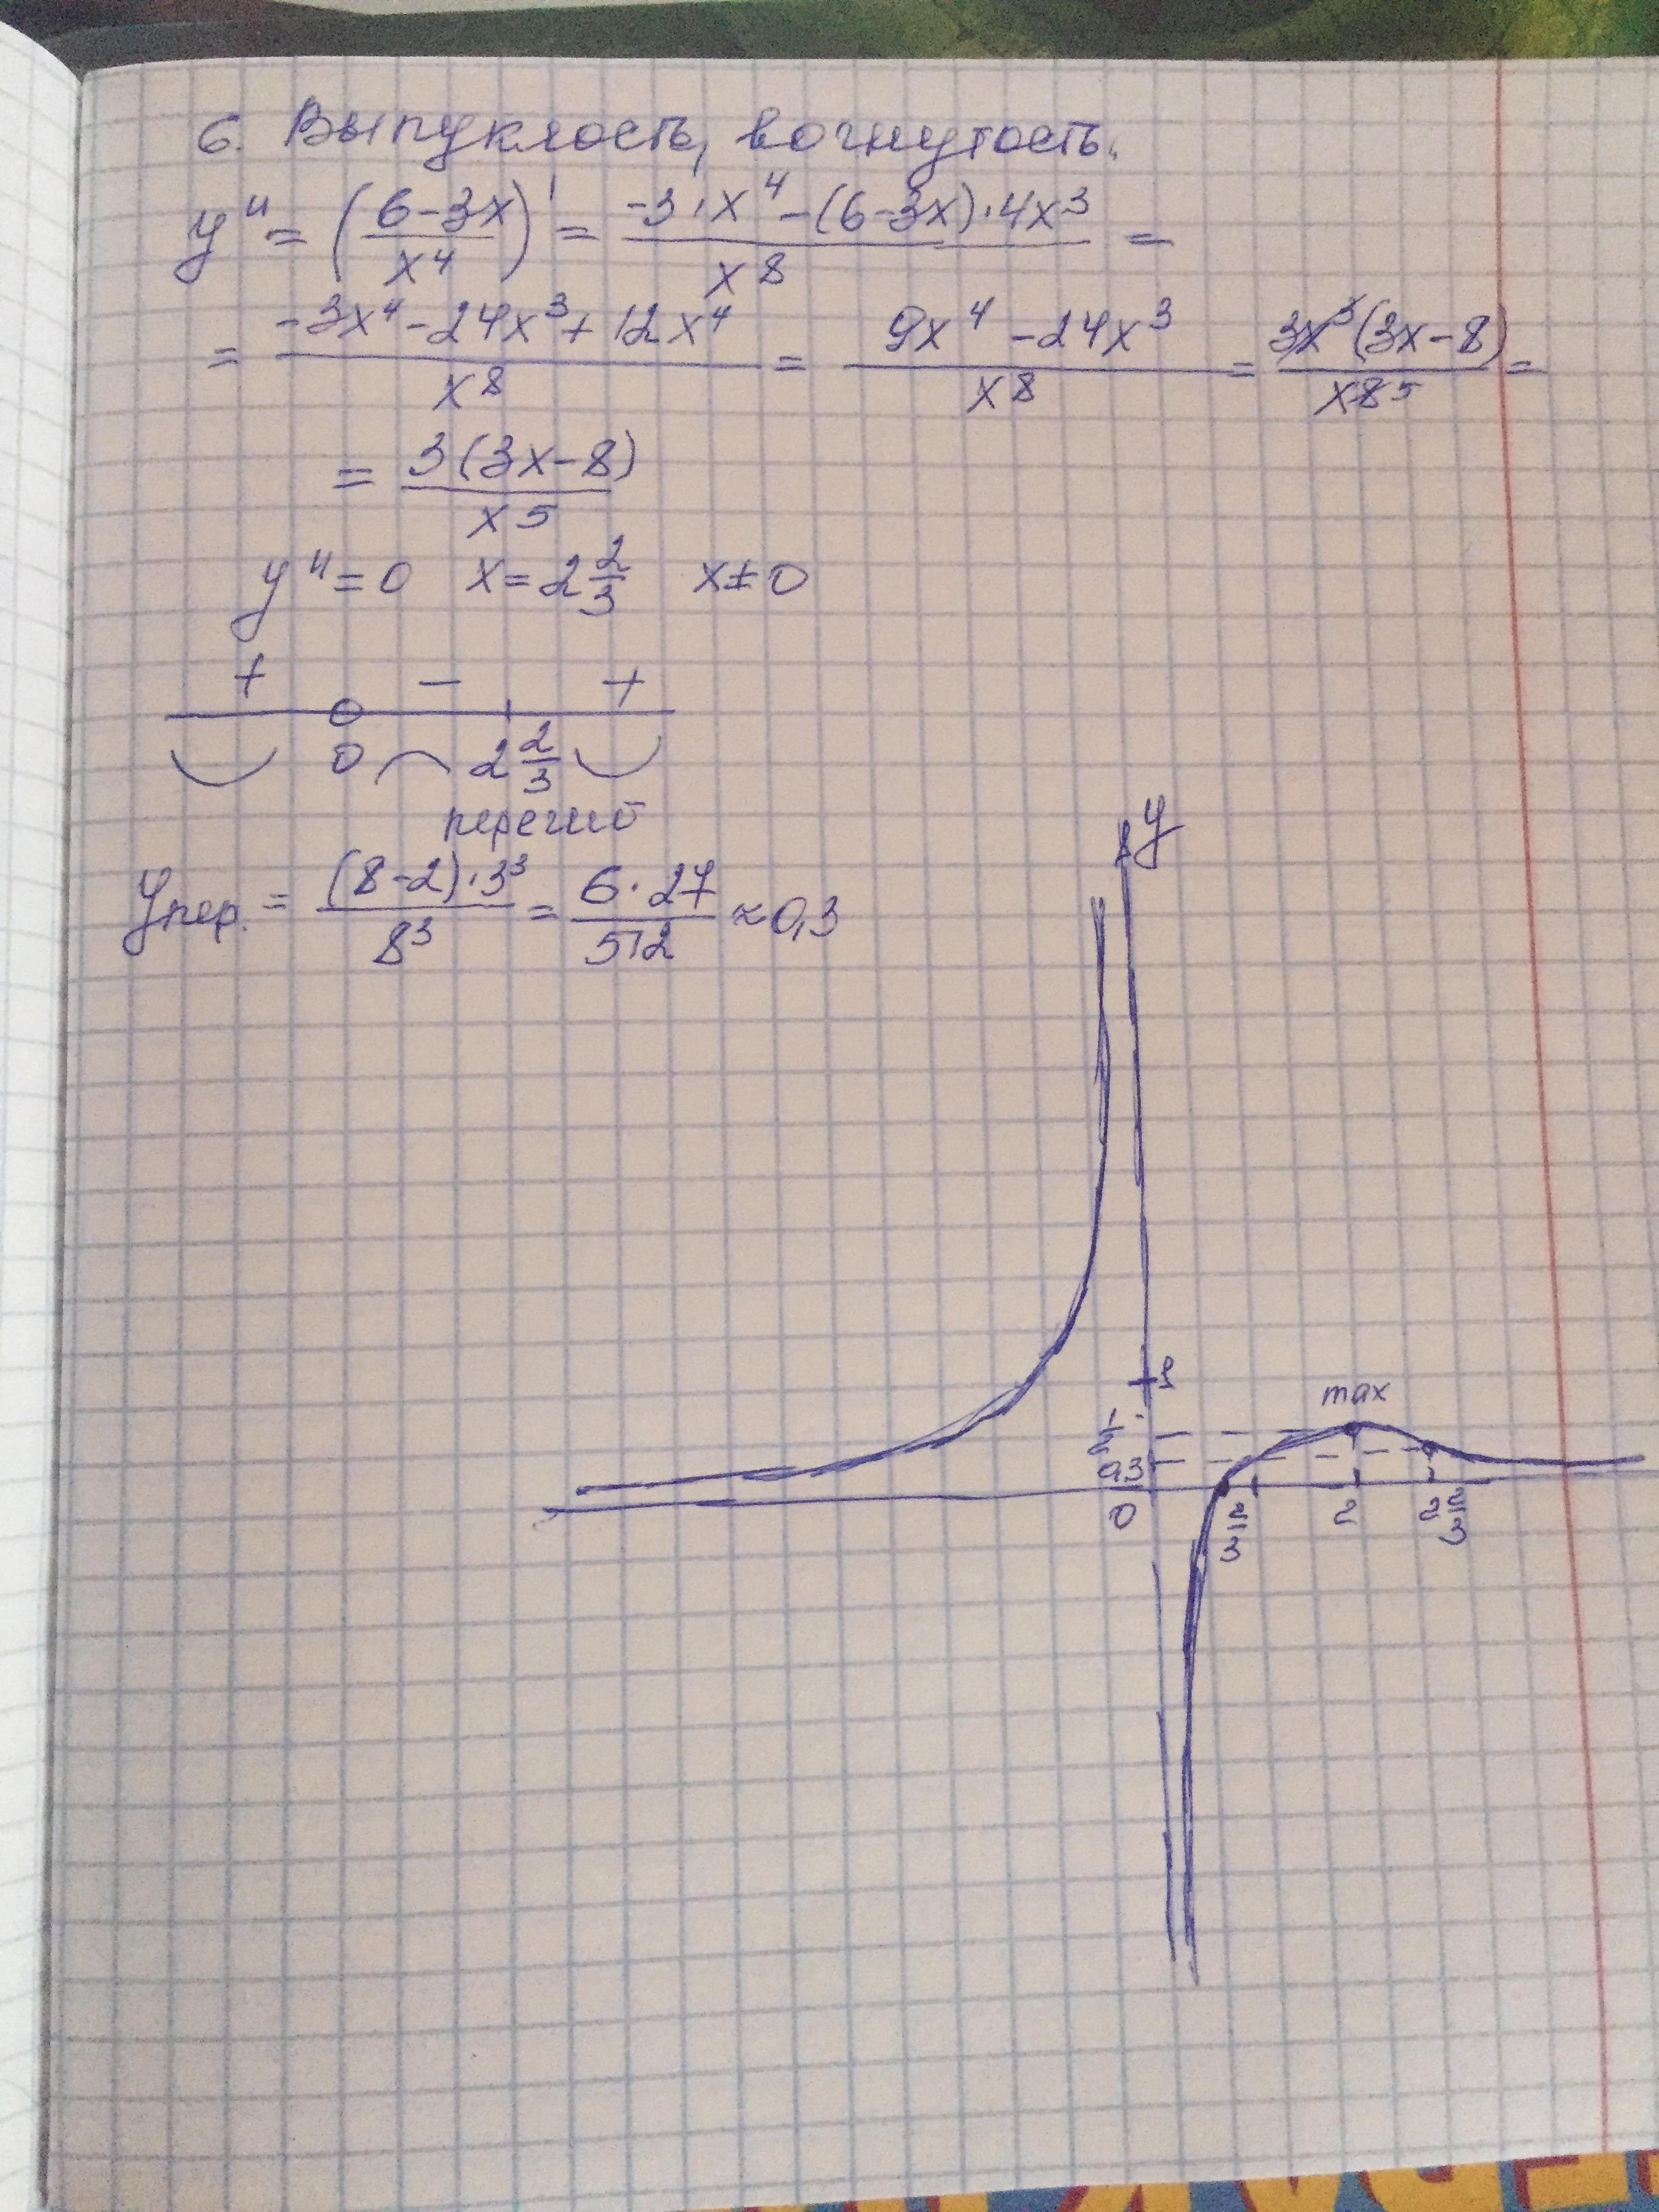 6. Выпуклость, вогнутость.
y'' = ((6-3x)/x⁴)' = (-3·x⁴-(6-3x)·4x³)/x⁸ =
= (-3x⁴-24x³+12x⁴)/x⁸ = (9x⁴-24x³)/x⁸ = 3x³(3x-8)/x⁸ ⁵ =
= 3(3x-8)/x⁵
y''=0 x=2 2/3 x≠0
+ - +
0 2 2/3
перегиб
yпер. = (8-2)·3³/8³ = 6·27/512 ≈0,3
y
1
max
1/2
0,3
0 2/3 2 2 2/3